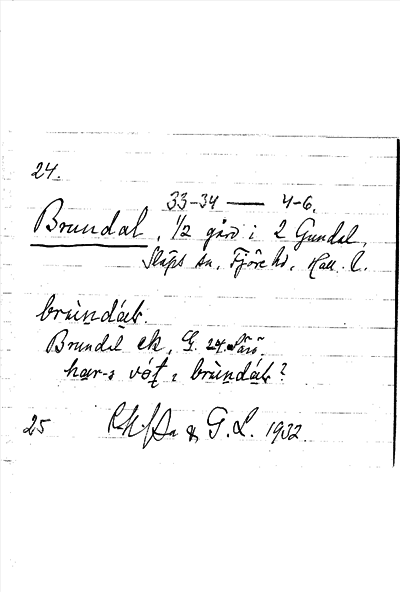 24.
33-34 — 4-6.
Brundal, 1/2 gård i 2 Gundal,
Släps sn, Fjäre hd, Hall. l.
brùndáɫ.
Brundal ek. G. 24 Särö
har-ɪ vót, ɪ brùndáɫ?
25 & G. L. 1932